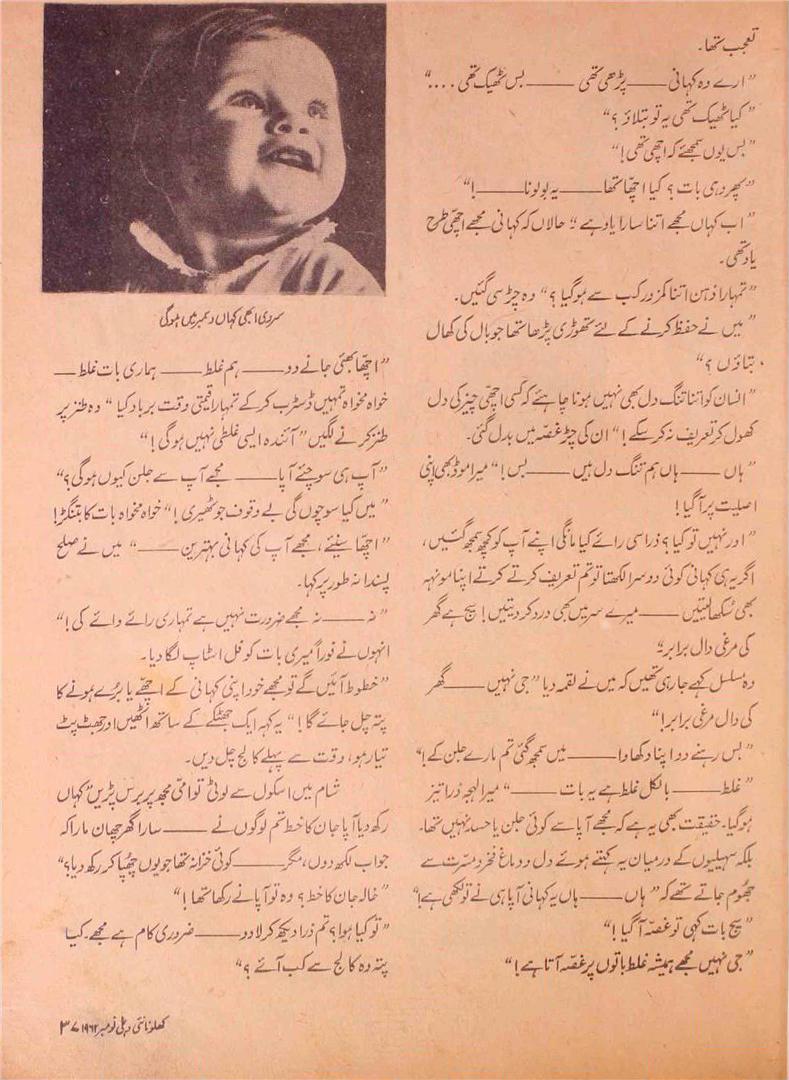 تعجب تھا۔
”ارے وہ کہانی ——— پڑھی تھی ——— بس ٹھیک تھی ....“
”کیا ٹھیک تھی یہ تو بتلاؤ ؟“
”بس یوں سمجھئے کہ اچھی تھی!“
”پھر وہی بات ؟ کیا اچھا تھا ——— یہ بولو نا ———!“
”اب کہاں مجھے اتنا سارا یاد ہے“ حالاں کہ کہانی مجھے اچھی طرح
یاد تھی۔
”تمہارا ذہن اتنا کمزور کب سے ہو گیا ؟“ وہ چڑ سی گئیں۔
”میں نے حفظ کرنے کے لئے تھوڑی پڑھا تھا جو بال کی کھال
بتاؤں ؟“
”انسان کو اتنا تنگ دل بھی نہیں ہونا چاہئے کہ کسی اچھی چیز کی دل
کھول کر تعریف نہ کر سکے!“ ان کی چڑ غصہ میں بدل گئی۔
”ہاں ——— ہاں ہم تنگ دل ہیں ——— بس!“ میرا موڈ بھی اپنی
اصلیت پر آگیا!
”اور نہیں تو کیا؟ ذرا سی رائے کیا مانگی اپنے آپ کو کچھ سمجھ گئیں،
اگر یہی کہانی کوئی دوسرا لکھتا تو تم تعریف کرتے کرتے اپنا مونہہ
بھی سُکھا لیتیں ——— میرے سر میں بھی درد کر دیتیں! سچ ہے گھر
کی مرغی دال برابر“
وہ مسلسل کہے جا رہی تھیں کہ میں نے لقمہ دیا ”جی نہیں ——— گھر
کی دال مرغی برابر!“
”بس رہنے دو اپنا دکھاوا ——— میں سمجھ گئی تم مارے جلن کے!“
”غلط ——— بالکل غلط ہے یہ بات ———“ میرا لہجہ ذرا تیز
ہوگیا۔ حقیقت بھی یہ ہے کہ مجھے آپا سے کوئی جلن یا حسد نہیں تھا۔
بلکہ سہیلیوں کے درمیان یہ کہتے ہوئے دل و دماغ فخر و مسرت سے
جھوم جاتے تھے کہ ”ہاں ——— ہاں یہ کہانی آپا ہی نے تو لکھی ہے!“
”سچ بات کہی تو غصہ آگیا!“
”جی نہیں مجھے ہمیشہ غلط باتوں پر غصہ آتا ہے!“
سردی ابھی کہاں دسمبر میں ہوگی
”اچھا بھئی جانے دو ——— ہم غلط ——— ہماری بات غلط ———
خواہ مخواہ تمہیں ڈسٹرب کر کے تمہارا قیمتی وقت برباد کیا“ وہ طنز پر
طنز کرنے لگیں ”آئندہ ایسی غلطی نہیں ہوگی!“
”آپ ہی سوچئے آپا ——— مجھے آپ سے جلن کیوں ہوگی؟“
”میں کیا سوچوں گی بے وقوف جو ٹھیری!“ خواہ مخواہ بات کا بتنگڑ!
”اچھا سنئے، مجھے آپ کی کہانی بہترین ———“ میں نے صلح
پسندانہ طور پر کہا۔
”نہ ——— نہ مجھے ضرورت نہیں ہے تمہاری رائے وائے کی!“
انہوں نے فوراً میری بات کو فل اسٹاپ لگا دیا۔
”خطوط آئیں گے تو مجھے خود اپنی کہانی کے اچھے یا بُرے ہونے کا
پتہ چل جائے گا!“ یہ کہہ ایک جھٹکے کے ساتھ اٹھیں اور جھٹ پٹ
تیار ہو، وقت سے پہلے کالج چل دیں۔
شام میں اسکول سے لوٹی تو امی مجھ پر برس پڑیں ”کہاں
رکھ دیا آپا جان کا خط تم لوگوں نے ——— سارا گھر چھان مارا کہ
جواب لکھ دوں، مگر ——— کوئی خزانہ تھا جو یوں چھپا کر رکھ دیا؟“
”خالہ جان کا خط؟ وہ تو آپا نے رکھا تھا!“
”تو کیا ہوا؟ تم ذرا دیکھ کر لا دو ——— ضروری کام ہے مجھے۔ کیا
پتہ وہ کالج سے کب آئے ؟“
کھلونا نئی دہلی نومبر ۱۹۶۲ ۳۷